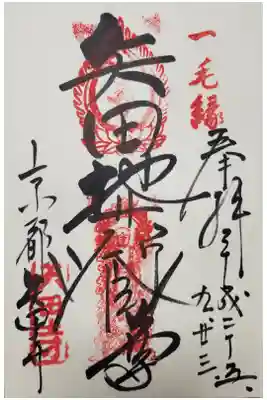 一毛縁
奉拝 平成二十五、
九廿三、
矢田地蔵尊
京都 矢田寺